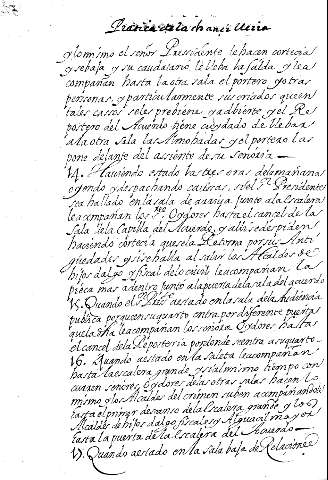 Practica de la chancilleria
y lo mismo el señor Pressidente le hacen cortecia
y se baja y su caudatario le lleba la falda y le a
compañan hasta la otra sala el portero y otras
personas, y particularmente sus criados que en
tales cassos se les prebiene y adbierte, y el Re
postero del Acuerdo tiene cuydado de llebar
a la otra sala las Almohadas y el portero las
pone delante del assiento de su señoria
14. Haviendo estado las tres oras de la mañana
oyendo y despachando caussas, si el Sr. Presidente
sea hallado en la sala de arriva junto a la Escalera
le acompañan los Sres. Oydores hasta el cancel de la
Sala de la Capilla del Acuerdo, y alli se despiden
haciendo cortecia que se la Retorna por sus Anti
guedades y si se halla al salir los Alcaldes de
hijos dalgo y fiscal de lo civil le acompañan las
pieca mas adentro junto a la puerta de la sala del acuerdo
15. Quando el Sr. Prest. a estado en la sala de la Audiencia
publica porque en su quarto entra por diferente puerta
que la otra le acompañan los señores Oydores hasta
el cancel de la Reposteria por donde se entra a su quarto
16. Quando a estado en la saleta le acompañan
hasta la escalera grande y si al mismo tiempo con
curren señores Oydores de las otras salas hacen lo
mismo y los Alcaldes del crimen suben acompañandole
hasta el primer descanso de la Escalera grande y los
Alcaldes de hijos dalgo fiscales y Alguacil mayor
hasta la puerta de la Escalera del Acuerdo
17. Quando a estado en la Sala baja de Relaciones